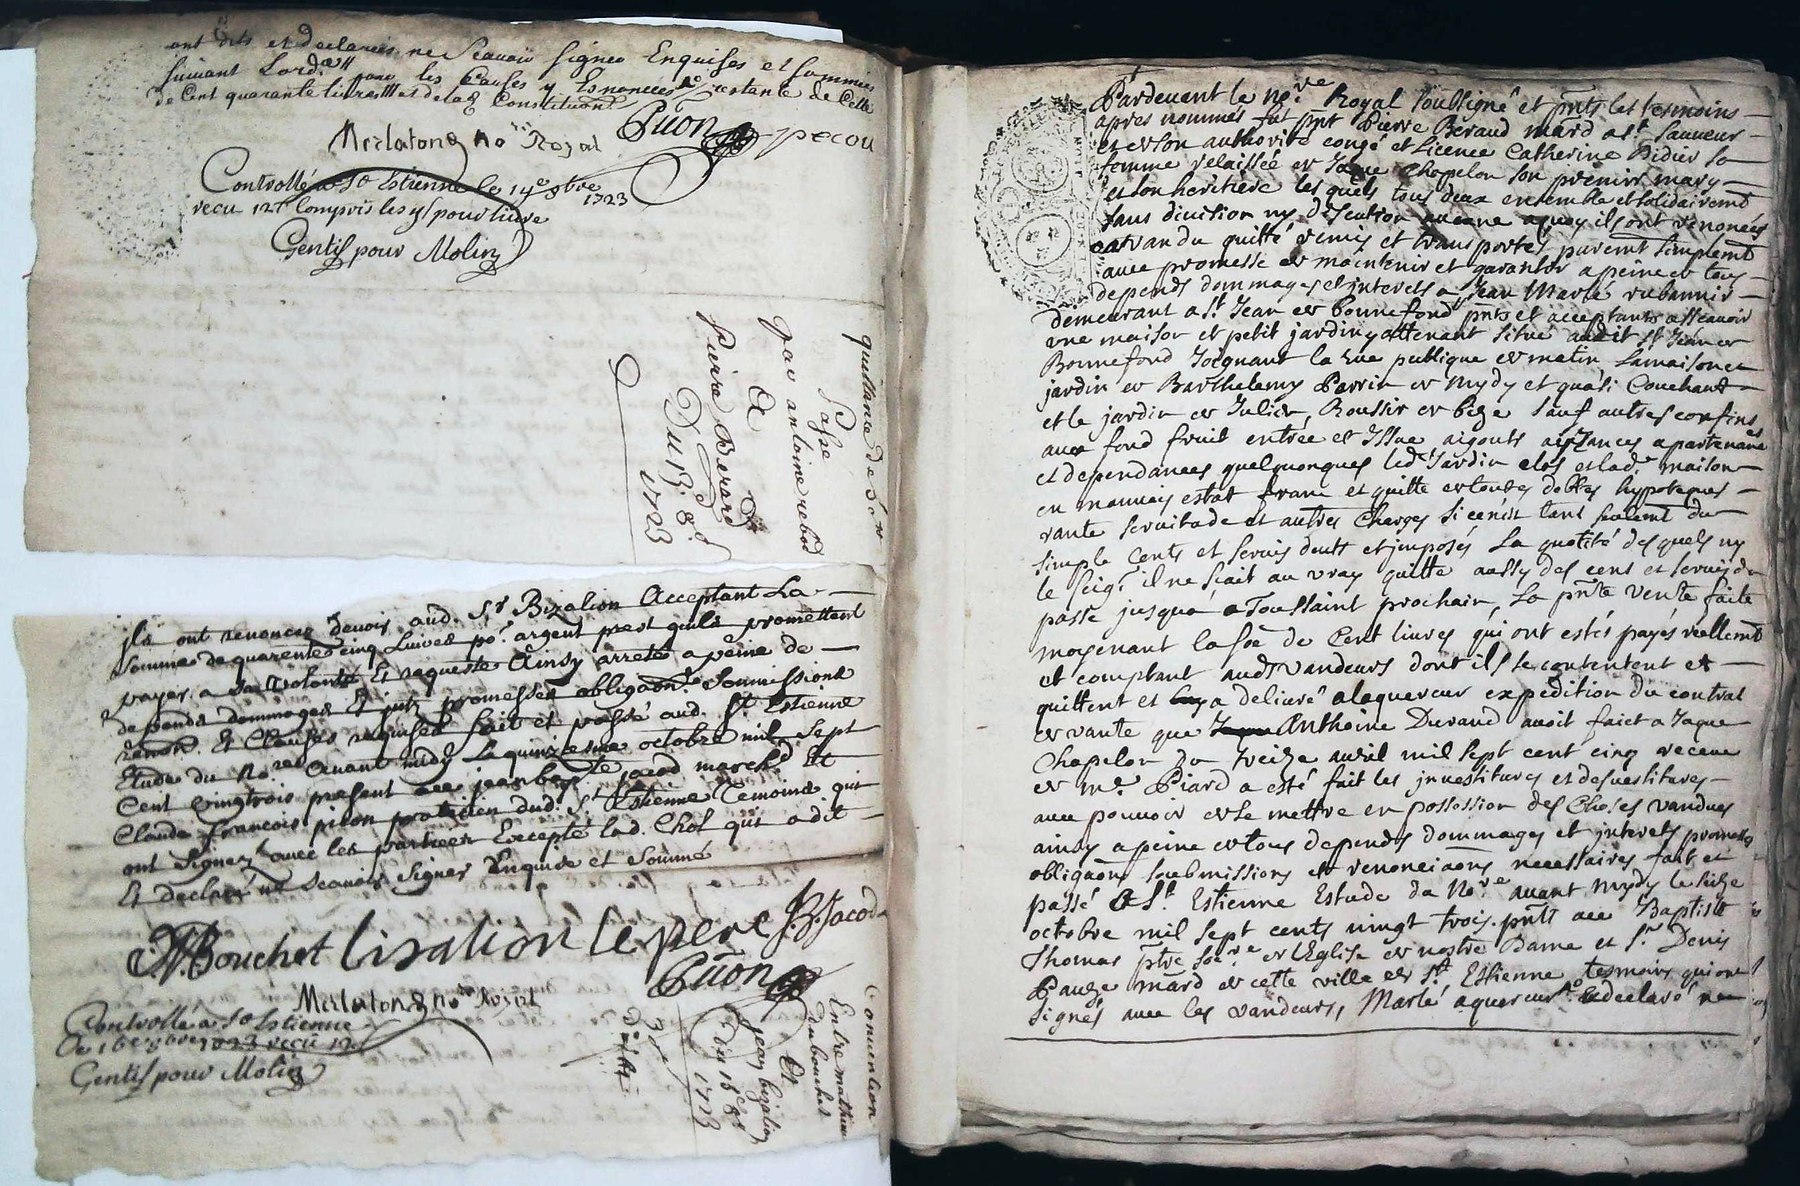 ont dits et declarées ne Scavoir Signer Enquises et Sommées
suivant Lord.ce pour les Causes y Enoncées restante de Celle
de Cent quarante livres et de lad Constitution
Cuon pecou
Merlaton no.re Royal
Controllé a St Estienne le 14e 8bre 1723
recu 12s Compris les 4s pour livre
Gentif pour Molin
quittance de
Passé
par antoine rebod
A
Pierre Berard
Du 13: 8.e
1723
ils ont renoncez devoir aud. Sr Bizalion Acceptant La
Somme de quarente cinq Livres po.r argent prest quils promettent
payer a Sa volonté Et requeste Ainsy arresté a peine de
depends dommages Et jnts promesses obligaons Soumissions
renon. Et Clauses requises fait et passé aud. St Estienne
Etude du No.re Avant midy Le quinziesme octobre mil Sept
Cent vingtrois present Mre jean bapt.te jacod march.d Et
Claude francois pilon praticien dud. St Estienne Temoins qui
ont Signez avec les parties Excepté lad. Chol qui a dit
Et declaré ne Scavoir Signer Enquise et Sommé
M Bouchet lisalion le pere J.B. Jacod
Cuon
Merlaton no.re Royal
Controllé a St Estienne
Le 16e 8bre 1723 recu 12s
Gentif pour Molin
Convention
Entre mathieu
dubouchet
Et
jean bizalion
Du 15e 8e
1723
Pardevant le no.re Royal Soubsigné et pnts les tesmoins
apres nommés fut pnt Pierre Beraud mard a St Sauveur
et de son authorité congé et licence Catherine Didier sa
femme relaissée de Jaque Chapelon son premier mary
et son heritiere lesquels tous deux ensemble et solidairemt
sans division ny discution aucune a quoy ils ont renoncés
ont vandu quitté remis et transportés puremt simplemt
avec promesse de maintenir et garantir a peine de tous
depends dommages et interets a Jean Marlé rubannier
demeurant a St Jean de bonnefond pnts et acceptants assçavoir
une maison et petit jardin y attenant situé audit St Jean de
Bonnefond Joignant la rue publique de matin la maison et
jardin de Barthelemy Perrin de mydy et quasi Couchant
et le jardin de Julien Roussir de bize sauf autres confins
avec fond fruit entrée et Issue aigouts aizances apartenances
et dependances quelquonques led. Jardin clos et lad. maison
en mauvais estat franc et quitte de toutes debtes hypoteques
rante servitude et autres Charges si ce nest tant seulemt du
simple Cents et servis deubt et imposés la quotité des quels ny
le Seig.r il ne sçait au vray quitte aussy des cent et servis du
passé jusqua a Toussaint prochain, La pnte vente faite
moyenant la soê de Cent livres qui ont estés payés reellemt
et comptant auds vandeurs dont ils se contentent et
quittent et a delivré a laquereur expedition du contrat
de vante que Anthoine Durand avoit faict a Jaque
Chapelon du treize avril mil sept cent cinq receue
de mr. Piard a esté fait les jnvestitures et desvestitures
avec pouvoir de se mettre en possession des Choses vandues
ainsy a peine de tous depends dommages et interets promettts
obligaons soubmissions et renonciaons necessaires fait et
passé A St. Estienne Estude du No.re avant mydy le seize
octobre mil sept cents vingt trois. pnts Mre Baptiste
Thomas ptre soc.re de l'Eglise de nostre Dame et Sr Denis
Pauze mard de cette ville de St Estienne tesmoins qui ont
signés avec les vandeurs, Marlé aquereur a declaré ne